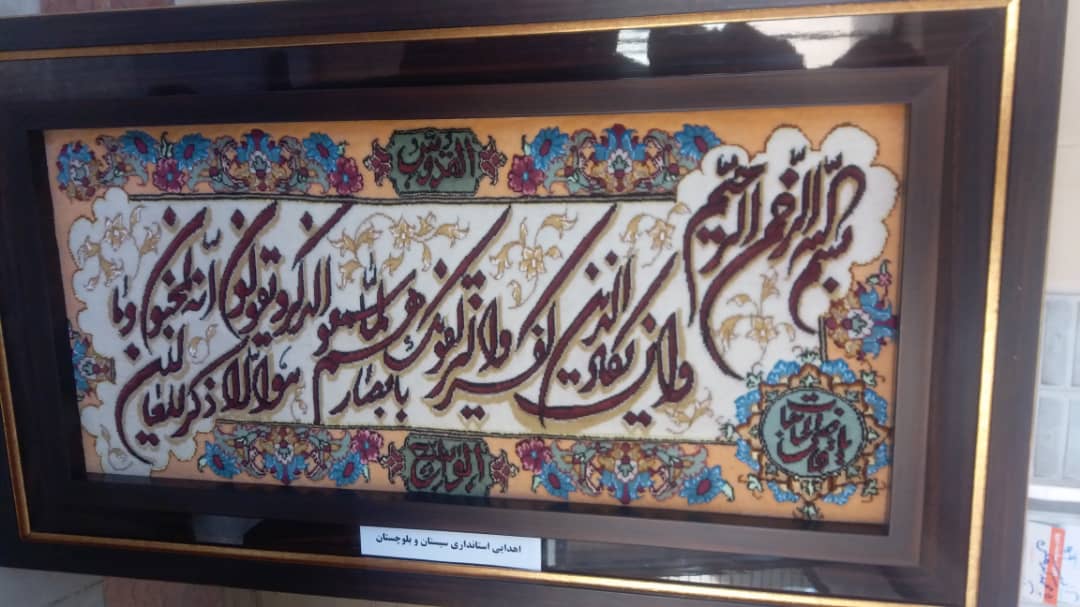 بسم الله الرحمن الرحیم
القدوس
وان یکاد الذین کفروا لیزلقونک بابصارهم لما سمعوا الذکر و یقولون انه لمجنون وما هو الا ذکر للعالمین
یا قاضی الحاجات
اهدایی استانداری سیستان و بلوچستان